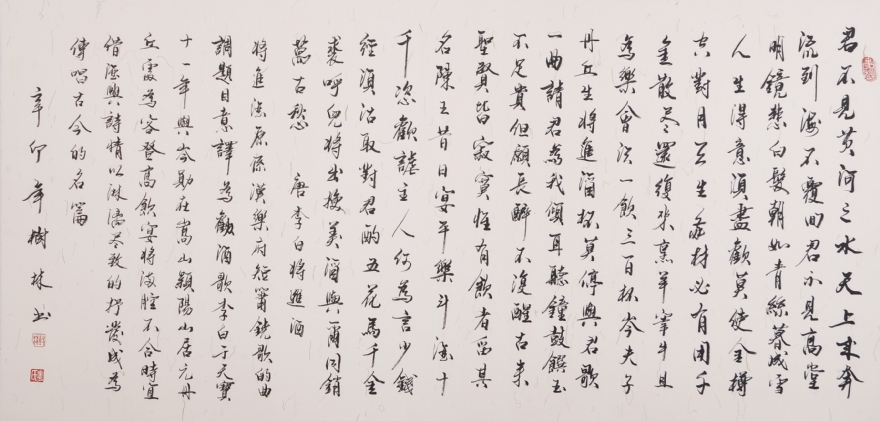 君不見黃河之水天上來奔
流到海不復回君不見高堂
明鏡悲白髮朝如青絲暮成雪
人生得意須盡歡莫使金樽
空對月天生吾材必有用千
金散盡還復來烹羊宰牛且
為樂會須一飲三百杯岑夫子
丹丘生將進酒杯莫停與君歌
一曲請君為我傾耳聽鐘鼓饌玉
不足貴但願長醉不復醒古來
聖賢皆寂寞惟有飲者留其
名陳王昔日宴平樂斗酒十
千恣歡謔主人何為言少錢
經須沽取對君酌五花馬千金
裘呼兒將出換美酒與爾同銷
萬古愁 唐李白將進酒
將進酒原係漢樂府短簫鐃歌的曲
調題目意譯為勸酒歌李白于天寶
十一年與岑勛在嵩山潁陽山居元丹
丘家為客登高飲宴將滿腔不合時宜
借酒興詩情以淋漓盡致的抒發成為
傳唱古今的名篇
辛卯年樹林書